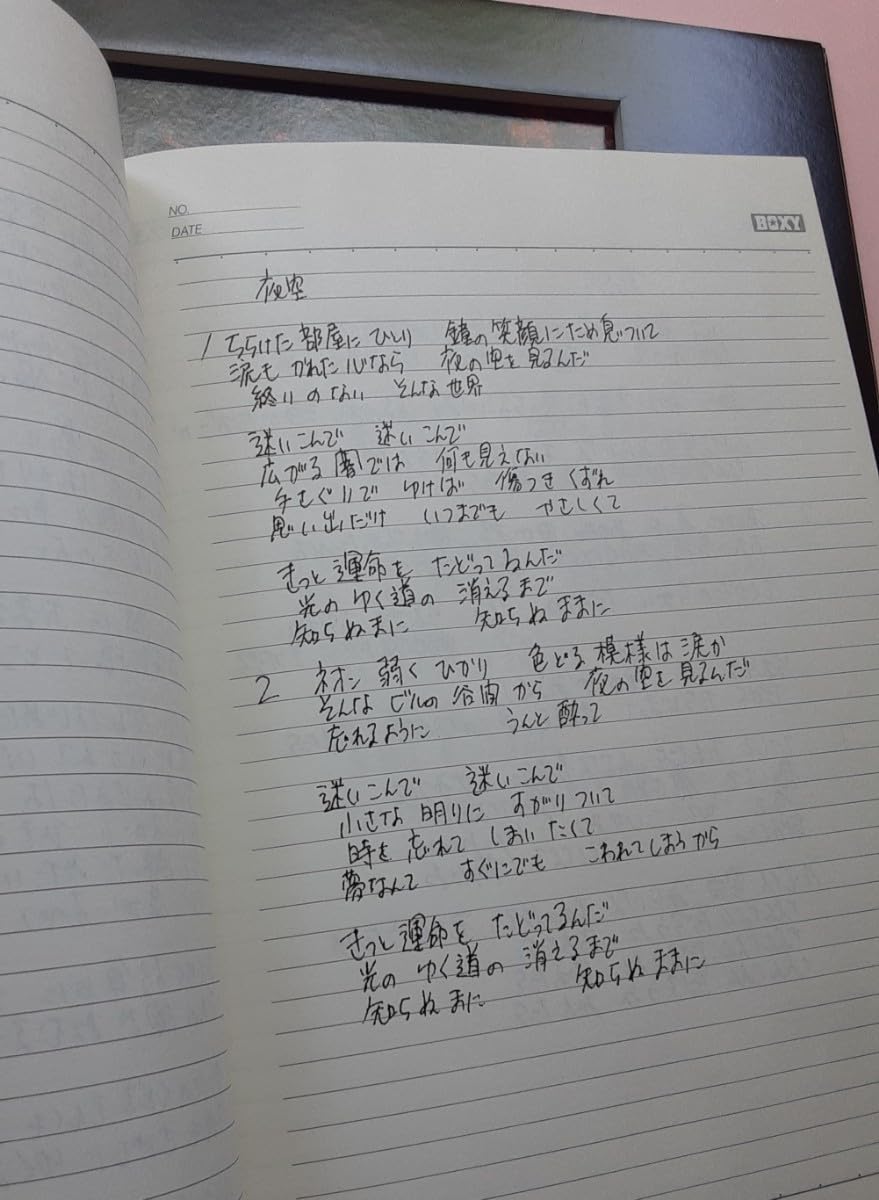 NO.
DATE
BOXY
夜空
1 ちらけた部屋にひとり 鏡の笑顔にため息ついて
涙も かれた心なら 夜の空を見るんだ
終りのない そんな世界
迷いこんで 迷いこんで
広がる闇では 何も見えない
手さぐりで ゆけば 傷つきくずれ
思い出だけ いつまでも やさしくて
きっと運命を たどってるんだ
光の ゆく道の 消えるまで
知らぬまに 知らぬままに
2 ネオン 弱く ひかり 色どる模様は涙か
そんな ビルの谷間から 夜の空を見るんだ
忘れるように うんと酔って
迷いこんで 迷いこんで
小さな明りに すがりついて
時を忘れて しまいたくて
夢なんて すぐにでも こわれてしまうから
きっと運命を たどってるんだ
光の ゆく道の 消えるまで
知らぬまに 知らぬままに